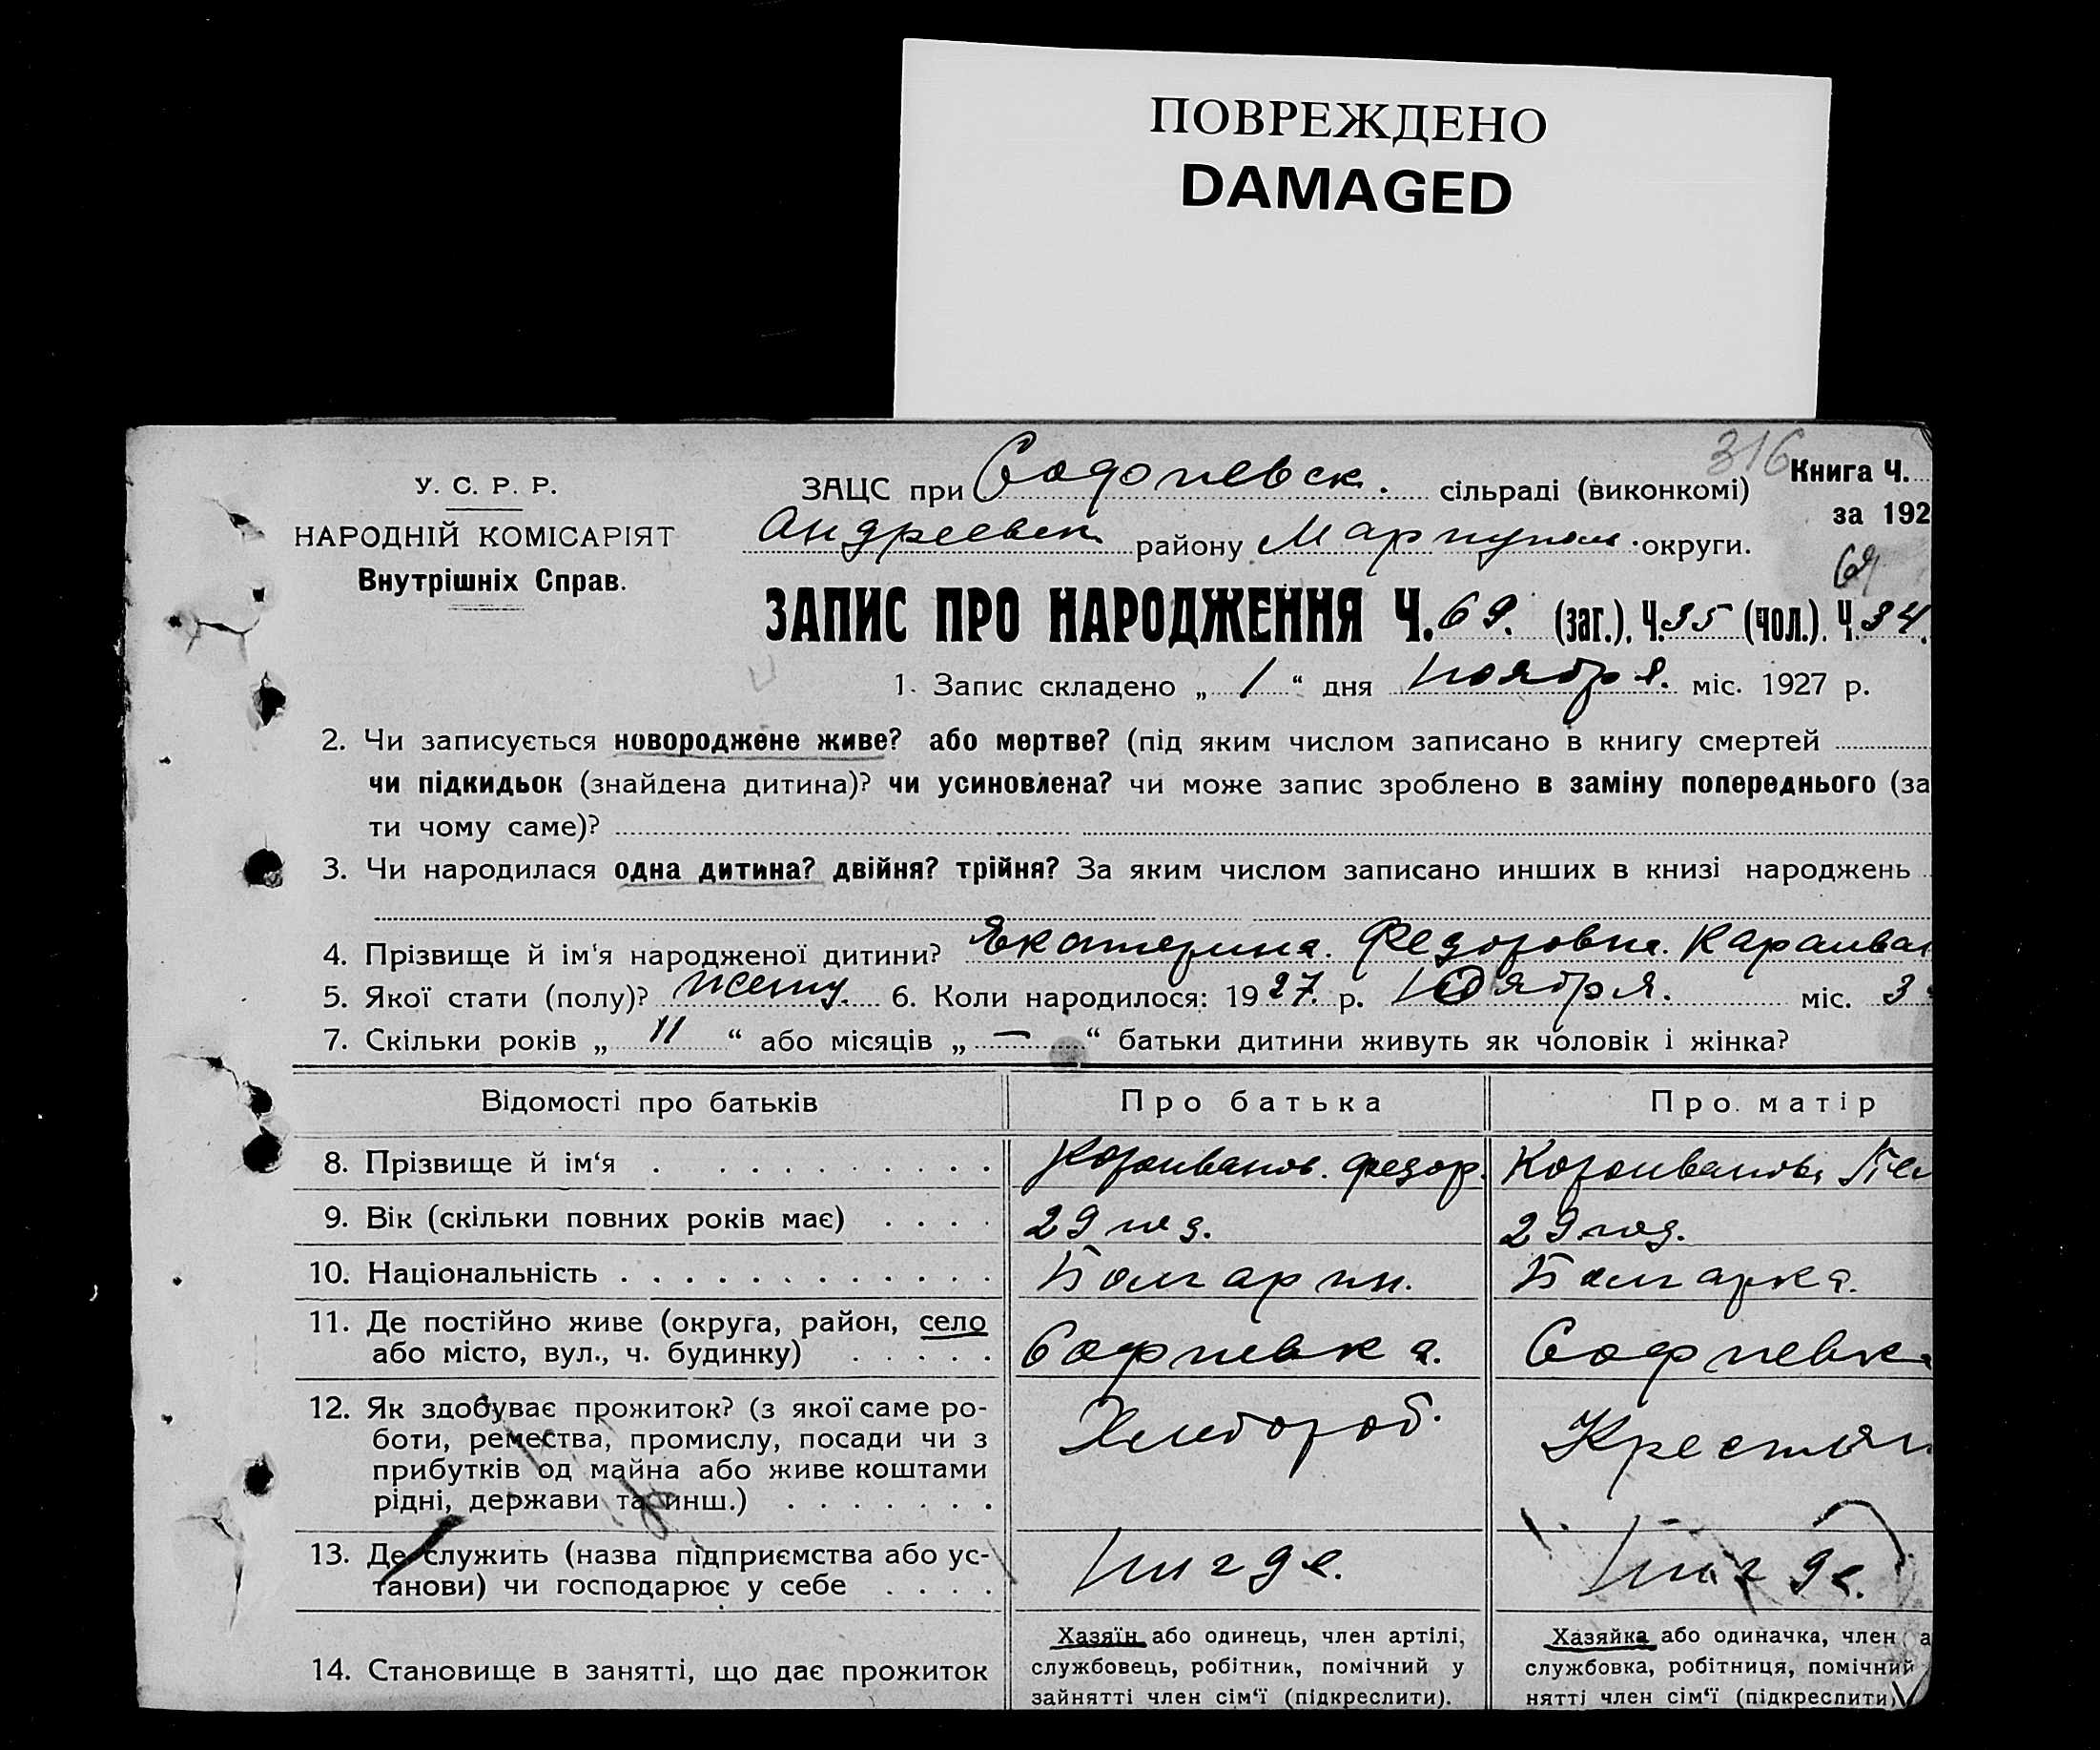 ПОВРЕЖДЕНО
DAMAGED
316
У. С. Р. Р.
НАРОДНІЙ КОМІСАРІЯТ
Внутрішніх Справ.
ЗАЦС при Содопевск. сільраді (виконкомі)
Книга Ч.
за 192
Андреевск району Мариупол. округи.
69
ЗАПИС ПРО НАРОДЖЕННЯ Ч. 69. (заг.). Ч. 35 (чол.). Ч. 34.
1. Запис складено „ 1 “ дня Ноября. міс. 1927 р.
2. Чи записується новороджене живе? або мертве? (під яким числом записано в книгу смертей
чи підкидьок (знайдена дитина)? чи усиновлена? чи може запис зроблено в заміну попереднього (за
ти чому саме)?
3. Чи народилася одна дитина? двійня? трійня? За яким числом записано инших в книзі народжень
4. Прізвище й ім‘я народженої дитини? Екатерина. Федоровна. Караиван
5. Якої стати (полу)? 6. Коли народилося: 19 27. р. Ноября. міс. 3
7. Скільки років „ 11 “ або місяців „ — “ батьки дитини живуть як чоловік і жінка?
Відомості про батьків Про батька Про матір
8. Прізвище й ім‘я Кораиванов. Федор. Кораиванова
9. Вік (скільки повних років має) 29 год. 29 год.
10. Національність Болгарин. Болгарка.
11. Де постійно живе (округа, район, село
або місто, вул., ч. будинку) Софиевка. Софиевка
12. Як здобуває прожиток? (з якої саме ро-
боти, ремества, промислу, посади чи з
прибутків од майна або живе коштами
рідні, держави та инш.) Хлебороб. Крестян
13. Де служить (назва підприємства або ус-
танови) чи господарює у себе Нигде. Нигде.
14. Становище в занятті, що дає прожиток
Хазяїн або одинець, член артілі,
службовець, робітник, помічний у
зайнятті член сім‘ї (підкреслити).
Хазяйка або одиначка, член а
службовка, робітниця, помічний
нятті член сім‘ї (підкреслити)